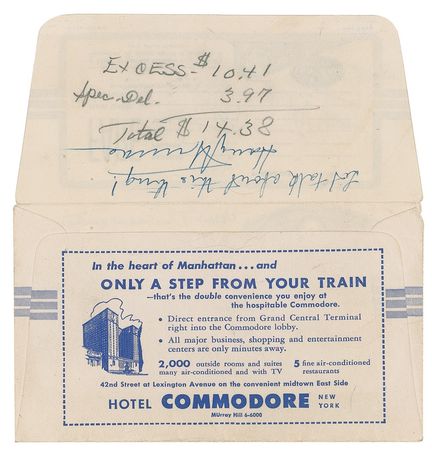 EXCESS - $10.41
Spec. Del. 3.97
Total $14.38
Let talk about this thing!
In the heart of Manhattan... and
ONLY A STEP FROM YOUR TRAIN
—that's the double convenience you enjoy at
the hospitable Commodore.
• Direct entrance from Grand Central Terminal
right into the Commodore lobby.
• All major business, shopping and entertainment
centers are only minutes away.
2,000 outside rooms and suites
many air-conditioned and with TV
5 fine air-conditioned
restaurants
42nd Street at Lexington Avenue on the convenient midtown East Side
HOTEL COMMODORE NEW YORK
MUrray Hill 6-6000